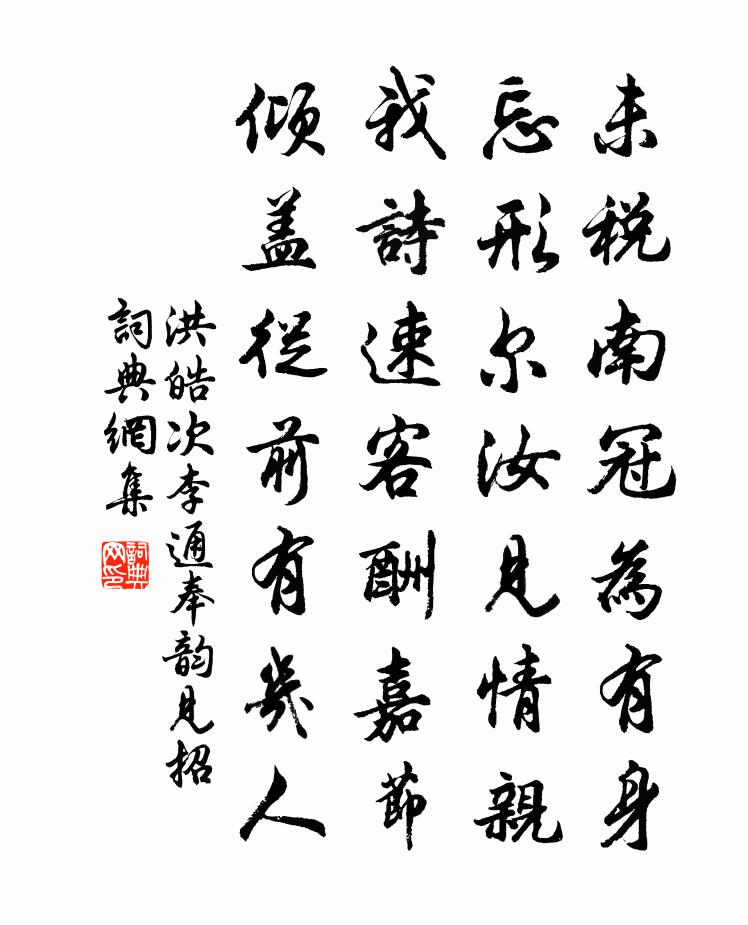 未税南冠為有身
忘形尔汝見情親
我詩速客酬嘉節
傾盖從前有幾人
洪皓次李通奉韵見招
詞典網集
詞典网印